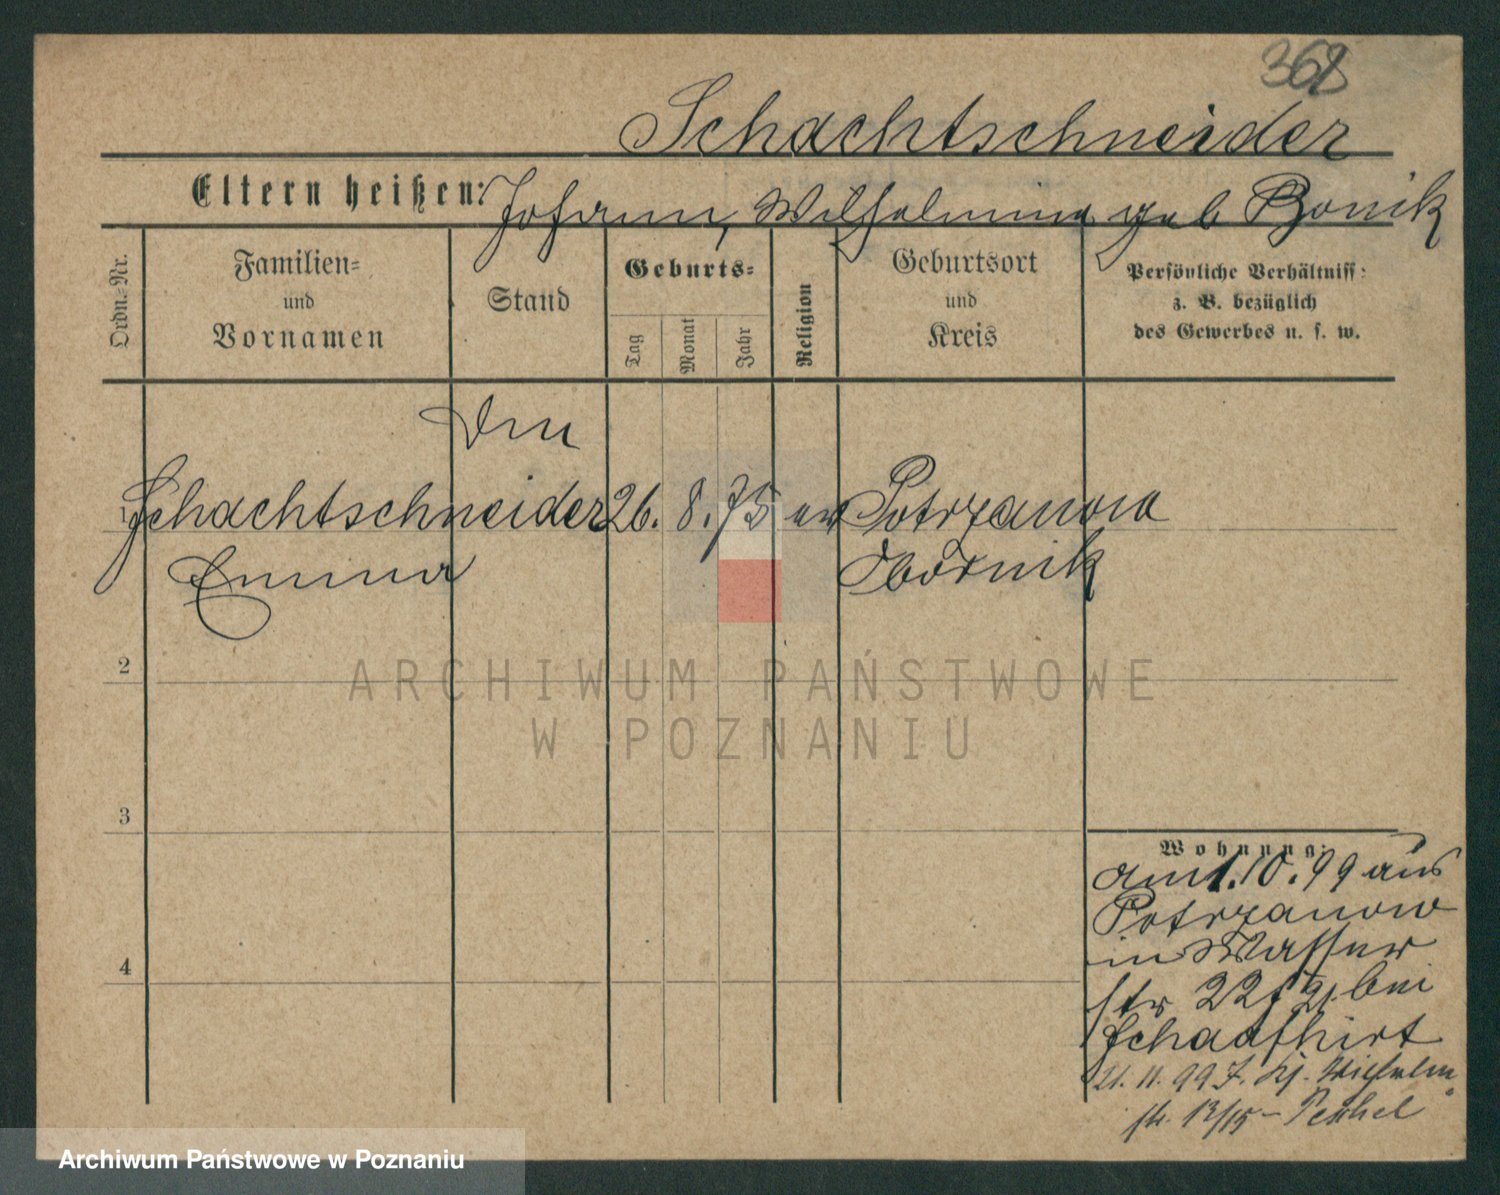 368
Schachtschneider
Eltern heißen: Johann, Wilhelmine geb Bonik
Ordn.-Nr.
Familien-
und
Vornamen
Stand
Geburts-
Tag
Monat
Jahr
Religion
Geburtsort
und
Kreis
Persönliche Verhältniss:
z. B. bezüglich
des Gewerbes u. s. w.
1 Schachtschneider 26. 8. 75 ev Potrzanowo
Emma Obornik
2
3
4
Wohnung:
am 1.10.99 aus
Potrzanowo
in Wasser
str 22 bei
Schaafhirt
21. 11. 99
13/15 –
ARCHIWUM PAŃSTWOWE
W POZNANIU
Archiwum Państwowe w Poznaniu